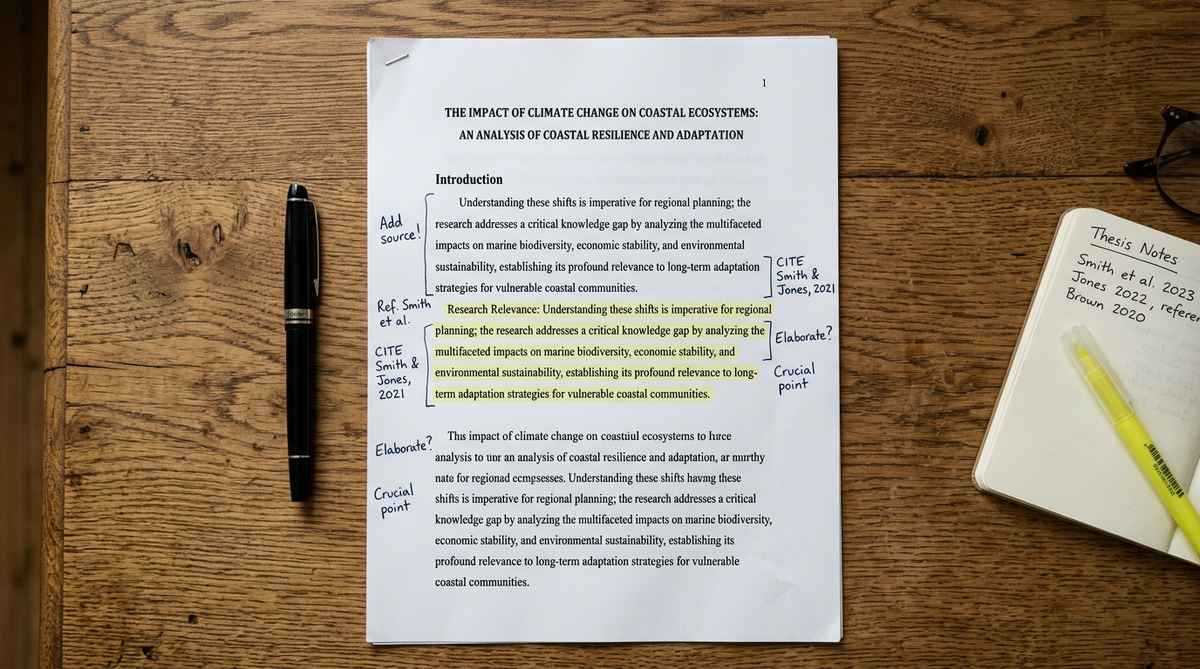 1
THE IMPACT OF CLIMATE CHANGE ON COASTAL ECOSYSTEMS:
AN ANALYSIS OF COASTAL RESILIENCE AND ADAPTATION
Introduction
Understanding these shifts is imperative for regional planning; the
research addresses a critical knowledge gap by analyzing the multifaceted
impacts on marine biodiversity, economic stability, and environmental
sustainability, establishing its profound relevance to long-term adaptation
strategies for vulnerable coastal communities.
Research Relevance: Understanding these shifts is imperative for regional
planning; the research addresses a critical knowledge gap by analyzing the
multifaceted impacts on marine biodiversity, economic stability, and
environmental sustainability, establishing its profound relevance to long-
term adaptation strategies for vulnerable coastal communities.
impact of climate change on ecosystems to
analysis to an analysis of coastal resilience and adaptation,
for these
shifts is imperative for regional planning; the research addresses a critical
knowledge gap by analyzing the multifaceted impacts on marine biodiversity,
economic stability, and environmental sustainability, establishing its
profound relevance to long-term adaptation strategies for vulnerable
coastal communities.
Add
source!
Ref. Smith
et al.
CITE
Smith &
Jones,
2021
Elaborate?
Crucial
point
CITE
Smith &
Jones, 2021
Elaborate?
Crucial
point
Thesis Notes
Smith et al. 2023
Jones 2022, refere
Brown 2020